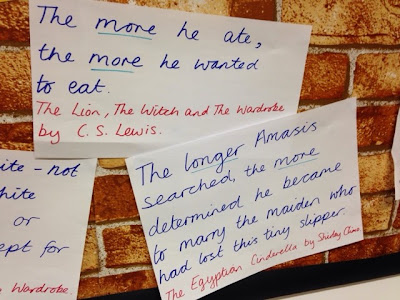 The more he ate,
the more he wanted
to eat.
The Lion, The Witch and The Wardrobe
by C. S. Lewis.
ite - not
hite
or
ept for
Wardrobe
The longer Amasis
searched, the more
determined he became
to marry the maiden who
had lost this tiny slipper.
The Egyptian Cinderella by Shirley Climo.